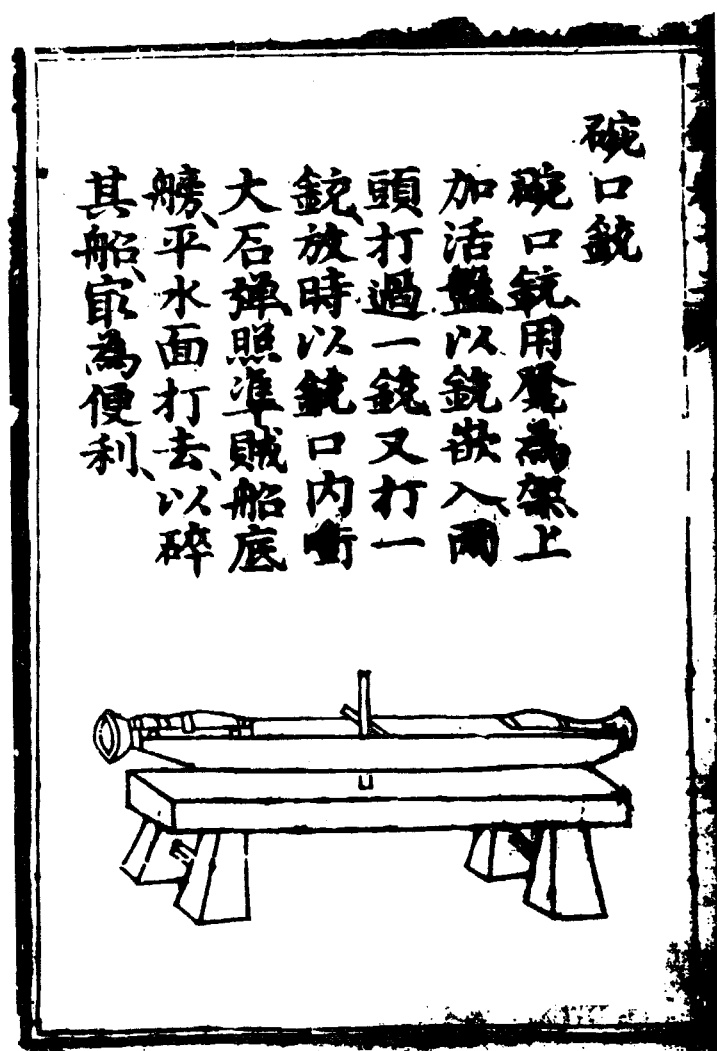 碗口銃
碗口銃、用凳為架、上
加活盤、以銃嵌入、兩
頭打過一銃、又打一
銃、放時以銃口内銜
大石彈、照準賊船底
艕、平水面打去、以碎
其船、㝡為便利、